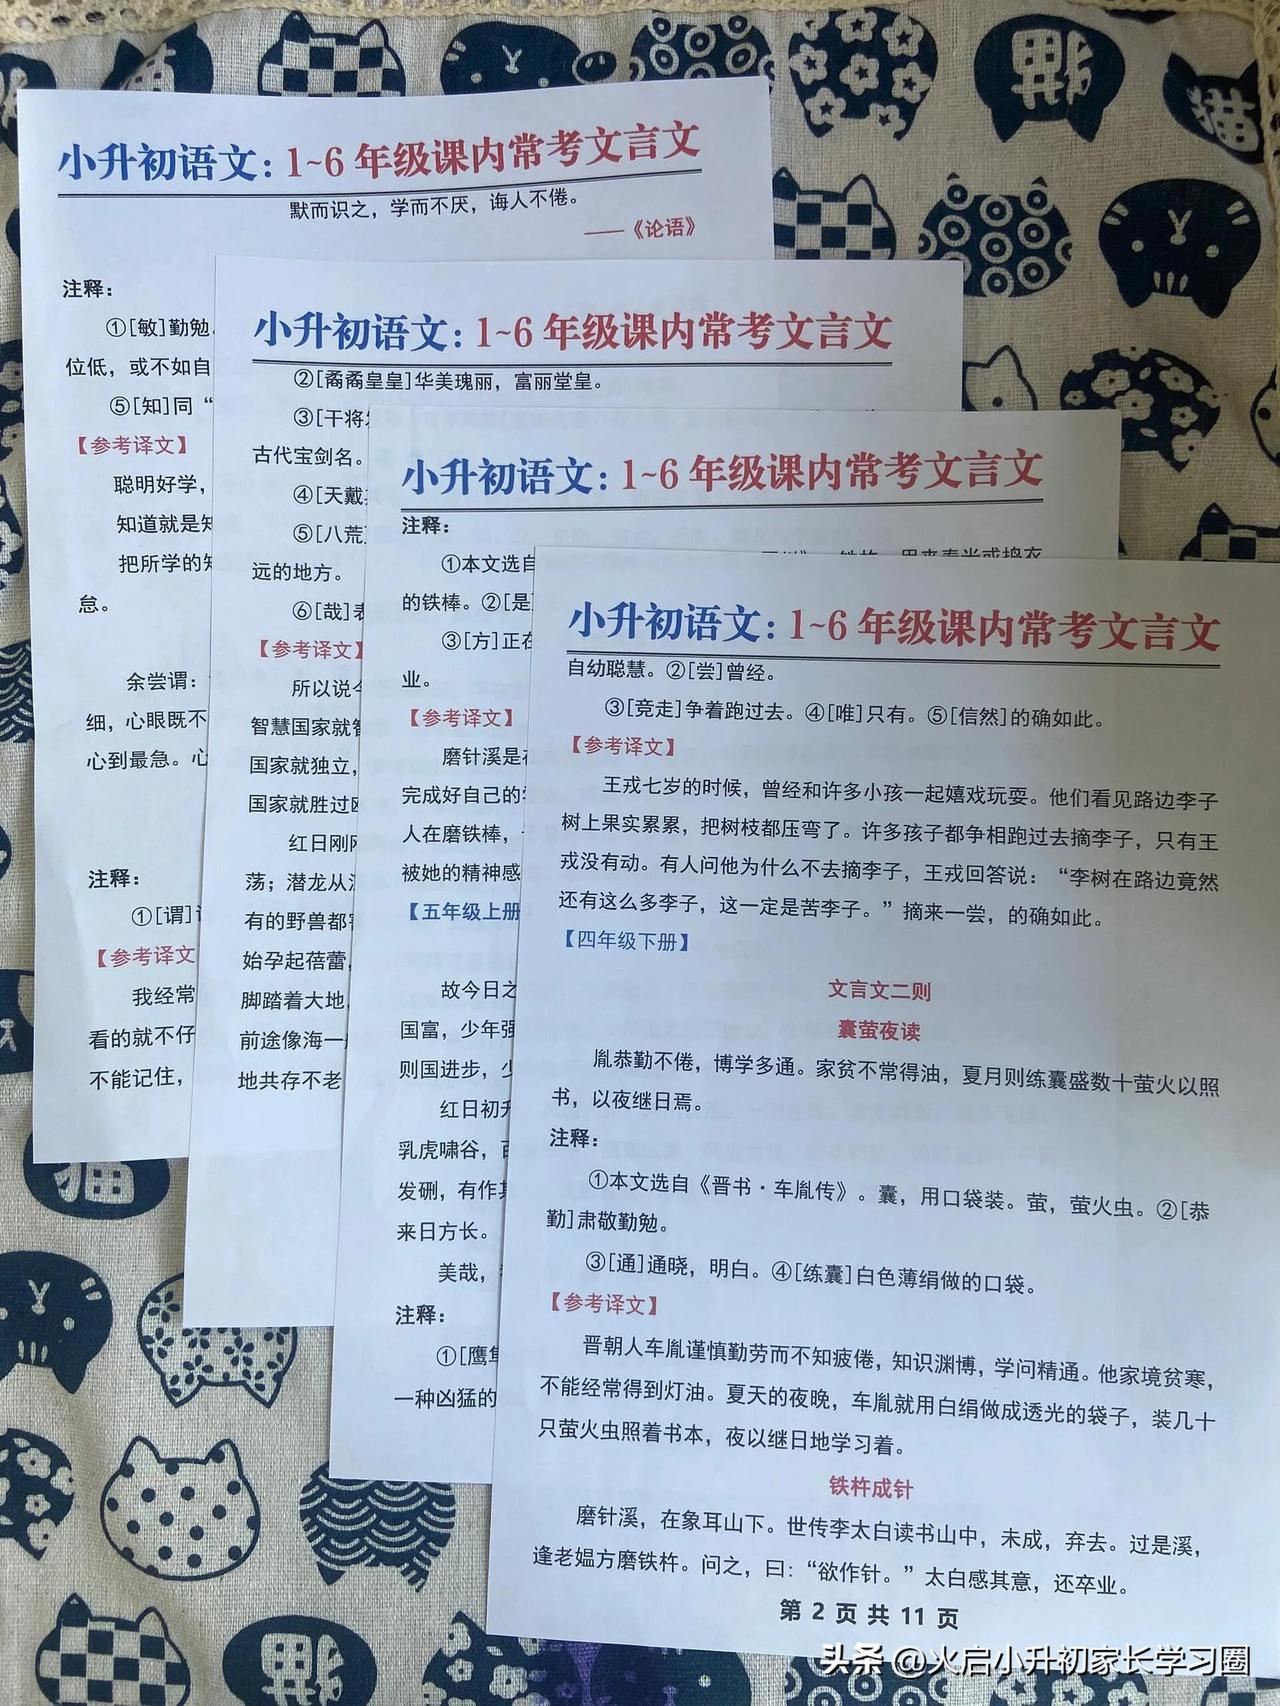 小升初语文：1~6年级课内常考文言文
默而识之，学而不厌，诲人不倦。
——《论语》
注释：
①[敏]勤勉
位低，或不如自
⑤[知]同“
【参考译文】
聪明好学，
知道就是知
把所学的知
怠。
余尝谓：
细，心眼既不
心到最急。心
注释：
①[谓]
【参考译文
我经常
看的就不仔
不能记住，
小升初语文：1~6年级课内常考文言文
②[矞矞皇皇]华美瑰丽，富丽堂皇。
③[干将
古代宝剑名。
④[天戴
⑤[八荒]
远的地方。
⑥[哉]表
【参考译文】
所以说今
智慧国家就智
国家就独立，
国家就胜过欧
红日刚刚
荡；潜龙从
有的野兽都害
始孕起蓓蕾，
脚踏着大地，
前途像海一
地共存不老
小升初语文：1~6年级课内常考文言文
注释：
①本文选自
的铁棒。②[是]
③[方]正在
业。
【参考译文】
磨针溪是在
完成好自己的学
人在磨铁棒，
被她的精神感
【五年级上册
故今日之
国富，少年强
则国进步，少
红日初升
乳虎啸谷，百
发硎，有作其
来日方长。
美哉，
注释：
①[鹰隼
一种凶猛的
小升初语文：1~6年级课内常考文言文
自幼聪慧。②[尝]曾经。
③[竞走]争着跑过去。④[唯]只有。⑤[信然]的确如此。
【参考译文】
王戎七岁的时候，曾经和许多小孩一起嬉戏玩耍。他们看见路边李子
树上果实累累，把树枝都压弯了。许多孩子都争相跑过去摘李子，只有王
戎没有动。有人问他为什么不去摘李子，王戎回答说：“李树在路边竟然
还有这么多李子，这一定是苦李子。”摘来一尝，的确如此。
【四年级下册】
文言文二则
囊萤夜读
胤恭勤不倦，博学多通。家贫不常得油，夏月则练囊盛数十萤火以照
书，以夜继日焉。
注释：
①本文选自《晋书·车胤传》。囊，用口袋装。萤，萤火虫。②[恭
勤]肃敬勤勉。
③[通]通晓，明白。④[练囊]白色薄绢做的口袋。
【参考译文】
晋朝人车胤谨慎勤劳而不知疲倦，知识渊博，学问精通。他家境贫寒，
不能经常得到灯油。夏天的夜晚，车胤就用白绢做成透光的袋子，装几十
只萤火虫照着书本，夜以继日地学习着。
铁杵成针
磨针溪，在象耳山下。世传李太白读书山中，未成，弃去。过是溪，
逢老媪方磨铁杵。问之，曰：“欲作针。”太白感其意，还卒业。
第 2 页 共 11 页
头条 @火启小升初家长学习圈